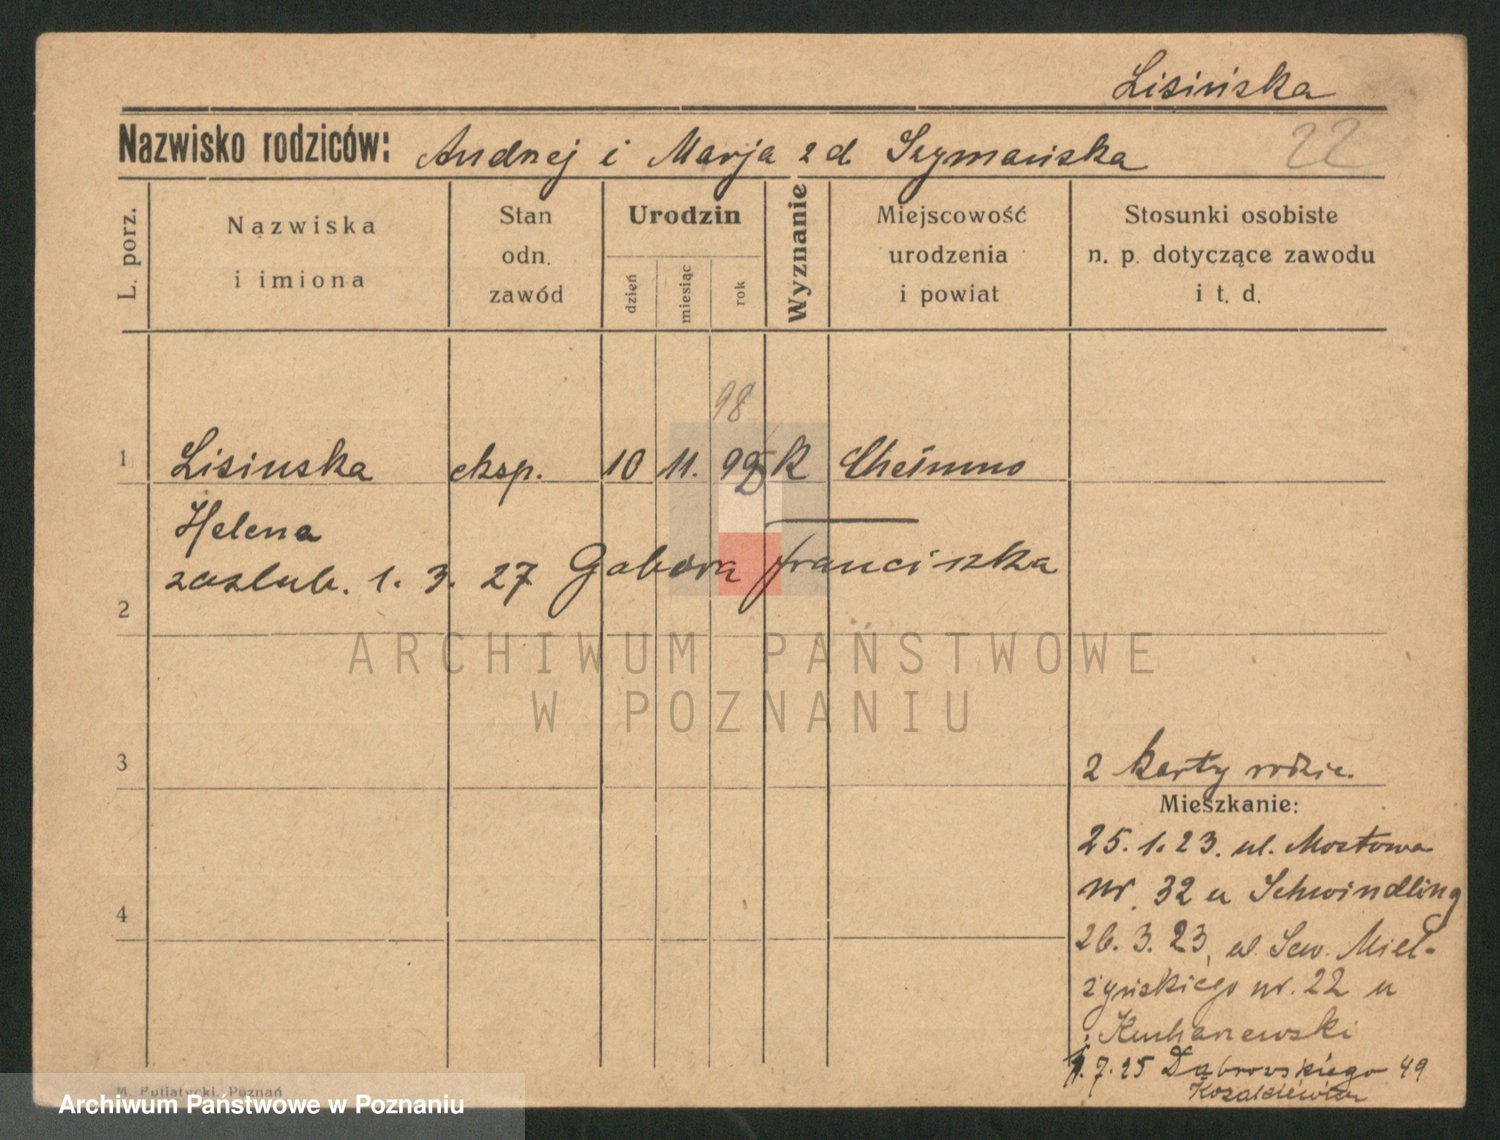 Lisińska
Nazwisko rodziców: Andrzej i Marja z d Szymańska
22
L. porz.
Nazwiska
i imiona
Stan
odn.
zawód
Urodzin
dzień
miesiąc
rok
Wyznanie
Miejscowość
urodzenia
i powiat
Stosunki osobiste
n. p. dotyczące zawodu
i t. d.
98
1 Lisinska eksp. 10 11. 99 K Chełmno
Helena
zaslub. 1. 3. 27 Gabora franciszka
2
ARCHIWUM PAŃSTWOWE
W POZNANIU
3
2 karty rodzic.
Mieszkanie:
25. 1. 23. ul. Mostowa
nr. 32 u Schwindling
4
26. 3. 23, ul. Sew. Miel-
żyńskiego nr. 22 u
Kucharzewski
1. 7. 25 Dąbrowskiego 49
Kozakiewicz
M. Putiatycki, Poznań
Archiwum Państwowe w Poznaniu